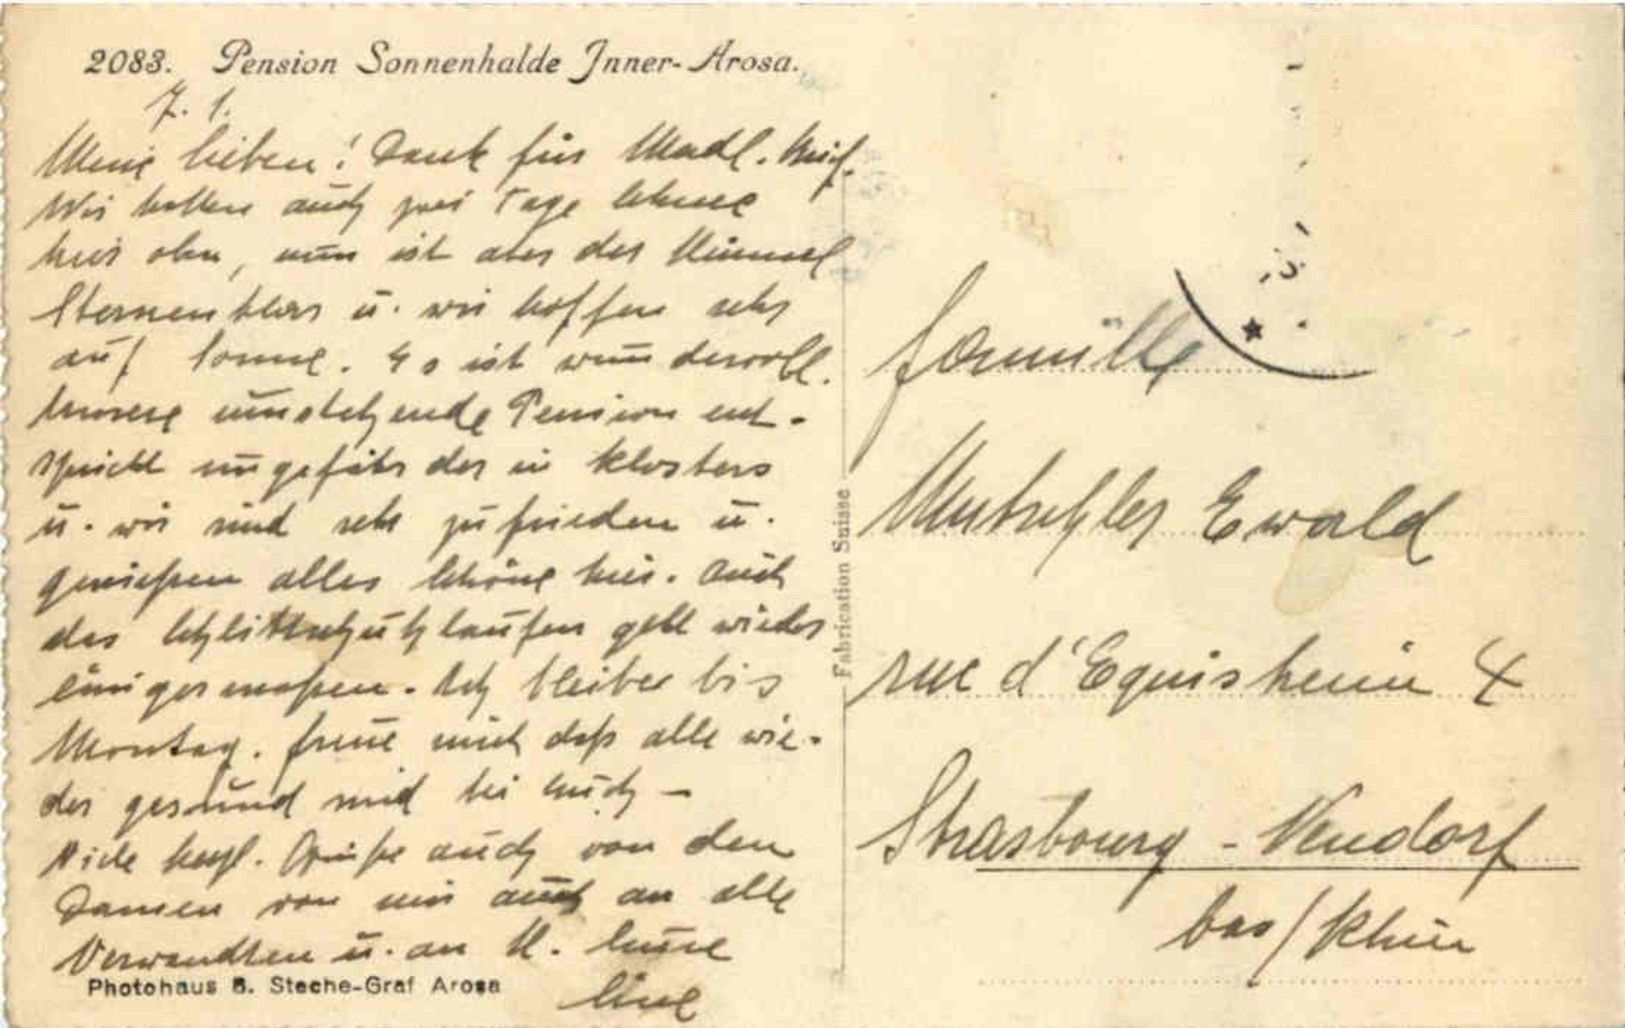 2083. Pension Sonnenhalde Inner-Arosa.
7. 1.
Meine lieben! Dank für
Wir hatten auch zwei Tage
hier oben, nun ist aber der Himmel
Sternenklar u. wir hoffen sehr
auf Sonne. Es ist wundervoll.
Unsere umstehende Pension ent-
spricht ungefähr der in Klosters
u. wir sind sehr zufrieden u.
genießen alles Schöne hier. Auch
das Schlittschuhlaufen geht wieder
einigermaßen. Ich bleibe bis
Montag. freue mich daß alle wie-
der gesund sind bei Euch –
Viele herzl. Grüße auch von den
Damen von mir auch an alle
Verwandten u. an M. Eure
Photohaus B. Steche-Graf Arosa
Fabrication Suisse
famille
Mutschler Ewald
rue d'Equisheim 4
Strasbourg - Neudorf
bas/Rhin